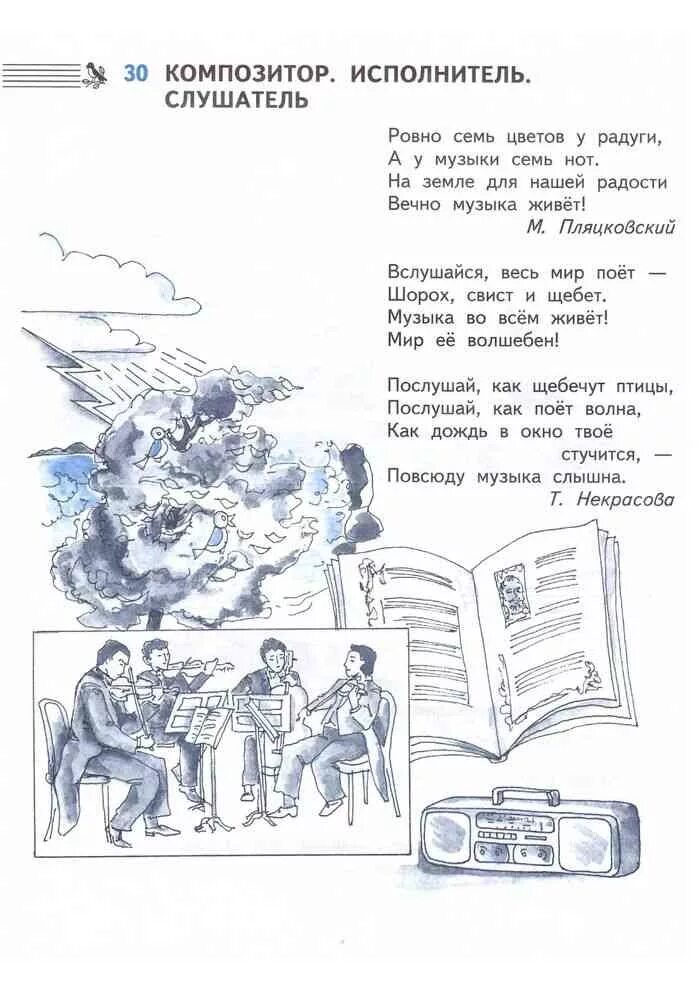 30 КОМПОЗИТОР. ИСПОЛНИТЕЛЬ.
СЛУШАТЕЛЬ
Ровно семь цветов у радуги,
А у музыки семь нот.
На земле для нашей радости
Вечно музыка живёт!
М. Пляцковский
Вслушайся, весь мир поёт —
Шорох, свист и щебет.
Музыка во всём живёт!
Мир её волшебен!
Послушай, как щебечут птицы,
Послушай, как поёт волна,
Как дождь в окно твоё
стучится, —
Повсюду музыка слышна.
Т. Некрасова